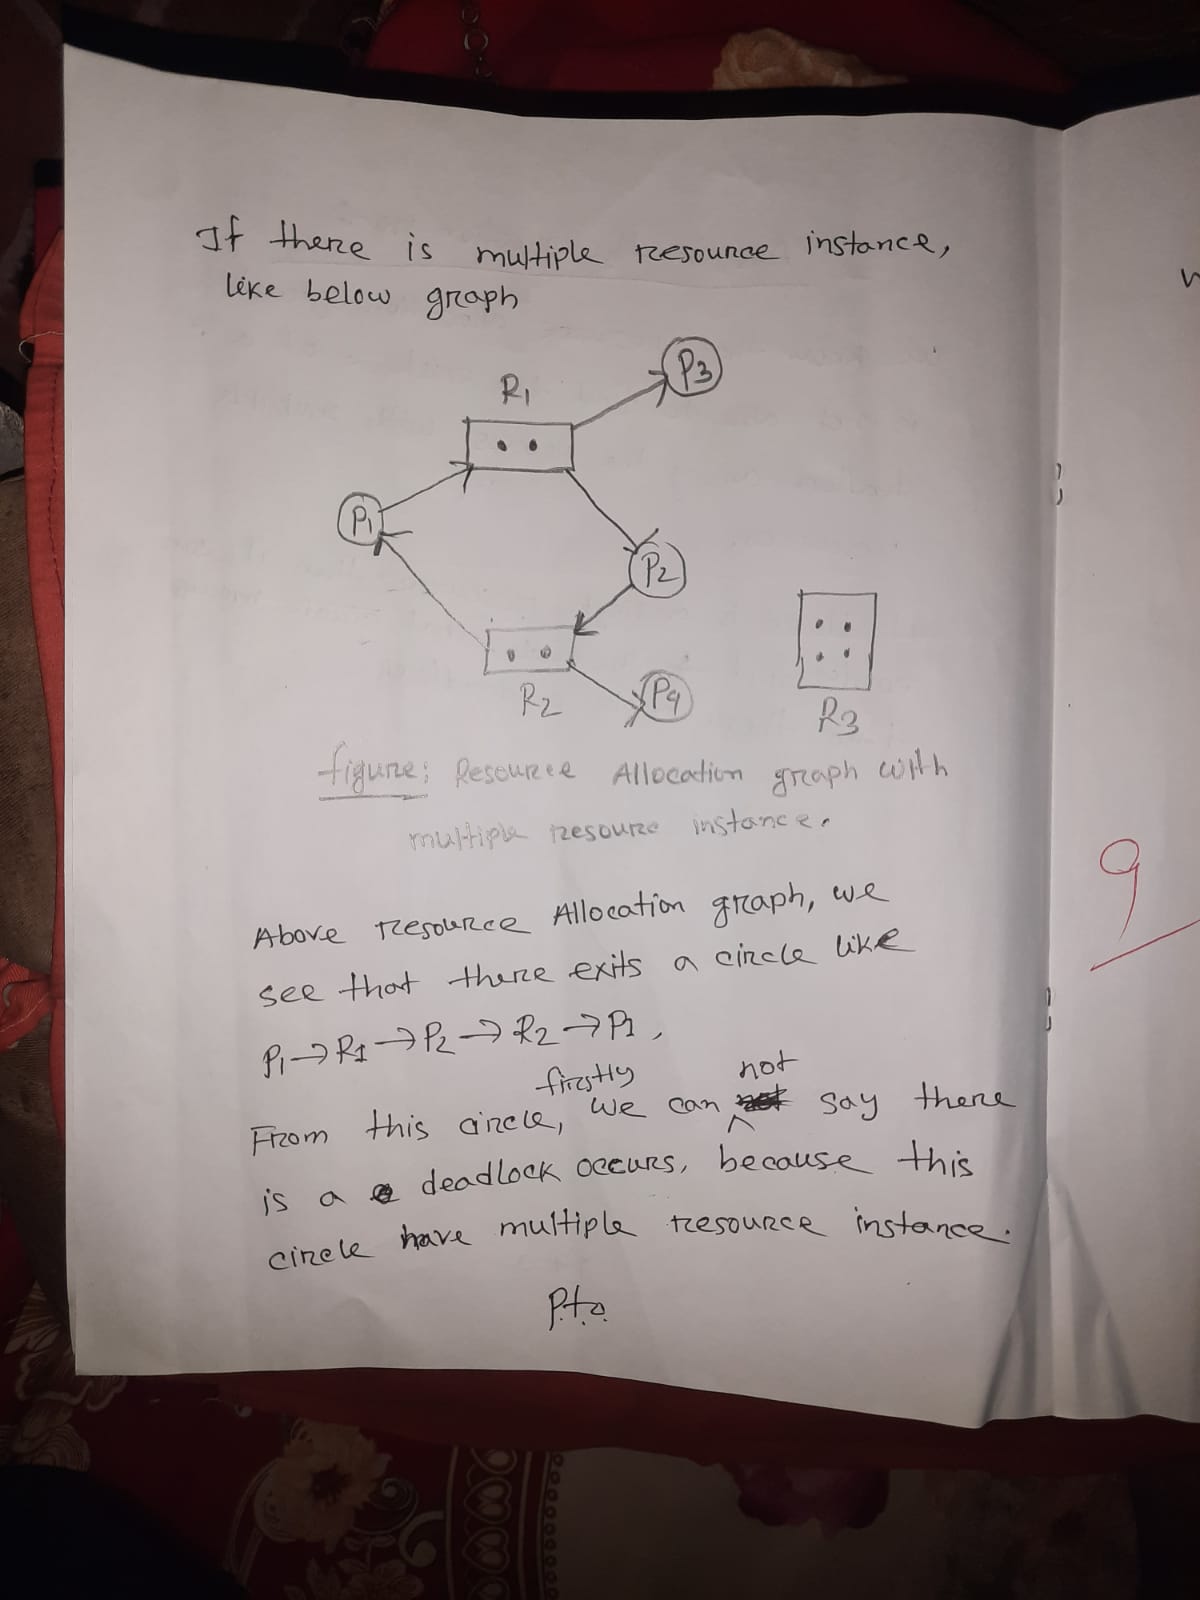 If there is multiple resource instance,
like below graph
P3
R1
P1
P2
R2
P4
R3
figure: Resource Allocation graph with
multiple resource instance.
Above resource Allocation graph, we
see that there exits a circle like
P1→R1→P2→R2→P1,
firstly not
From this circle, we can say there
is a deadlock occurs, because this
circle have multiple resource instance.
P.t.o.
9